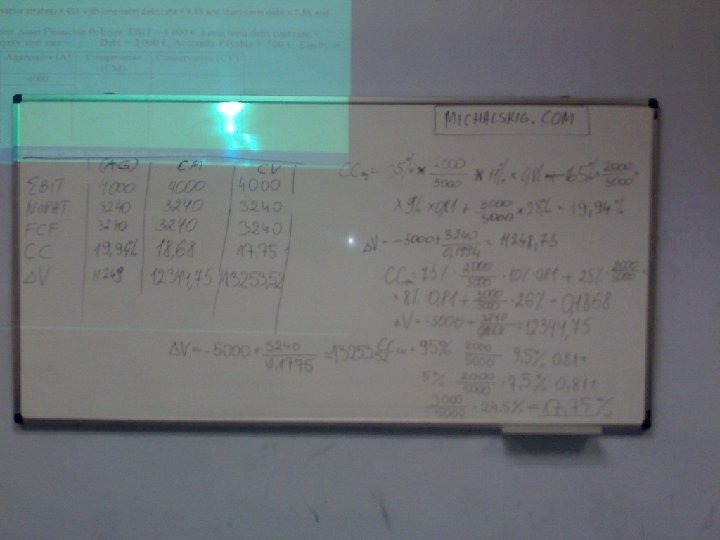 strategy = 95% with long-term debt rate = 9.5% and short-term debt = 7.5% and
Asset Financing Policies. EBIT = 4 000 €, Long term debt cost rate =
Debt = 2 000 €, Accounts Payable = 500 €, Equity =
Aggressive (A) Compromise (CM) Conservative (CV)
4000
MICHALSKIG.COM
(AG) CM CV
EBIT 4000 4000 4000
NOPAT 3240 3240 3240
FCF 3240 3240 3240
CC 19,94% 18,68 17,75
ΔV 11249 12344,75 13253,52
ΔV = -5000 + 3240/0,1775 = 13253,52
35% × 2000/5000 × 11% × 0,81 + 65% × 2000/5000 ×
× 9% × 0,81 + 3000/5000 × 28% = 19,94%
ΔV = -5000 + 3240/0,1994 = 11248,75
= 75% · 2000/5000 · 10% 0,81 + 25% · 2000/5000 ·
× 8% 0,81 + 3000/5000 · 26% = 0,1868
ΔV = -5000 + 3240/0,1868 = 12344,75
= 95% · 2000/5000 · 9,5% 0,81 +
5% · 2000/5000 · 7,5% 0,81 +
3000/5000 · 24,5% = 17,75%